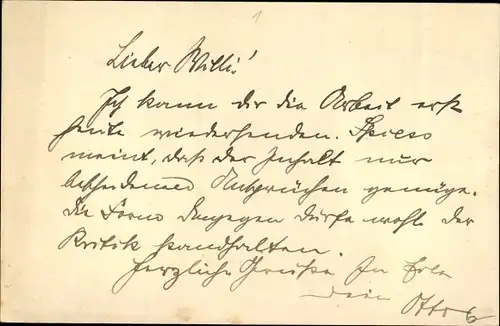 1
Lieber Willi!
Ich kann dir die Arbeit erst
heute wiedersenden. Spiess
meint, daß der Inhalt nur
bescheidenen Ansprüchen genüge.
Die Form dagegen dürfe wohl der
Kritik standhalten.
Herzliche Grüße
Dein Otto